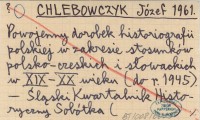 CHLEBOWCZYK Józef 1961.
Powojenny dorobek historiografii
polskiej w zakresie stosunków
polsko-czeskich i słowackich
w XIX-XX wieku (do r. 1945)
- Śląski Kwartalnik Histo-
ryczny Sobótka (